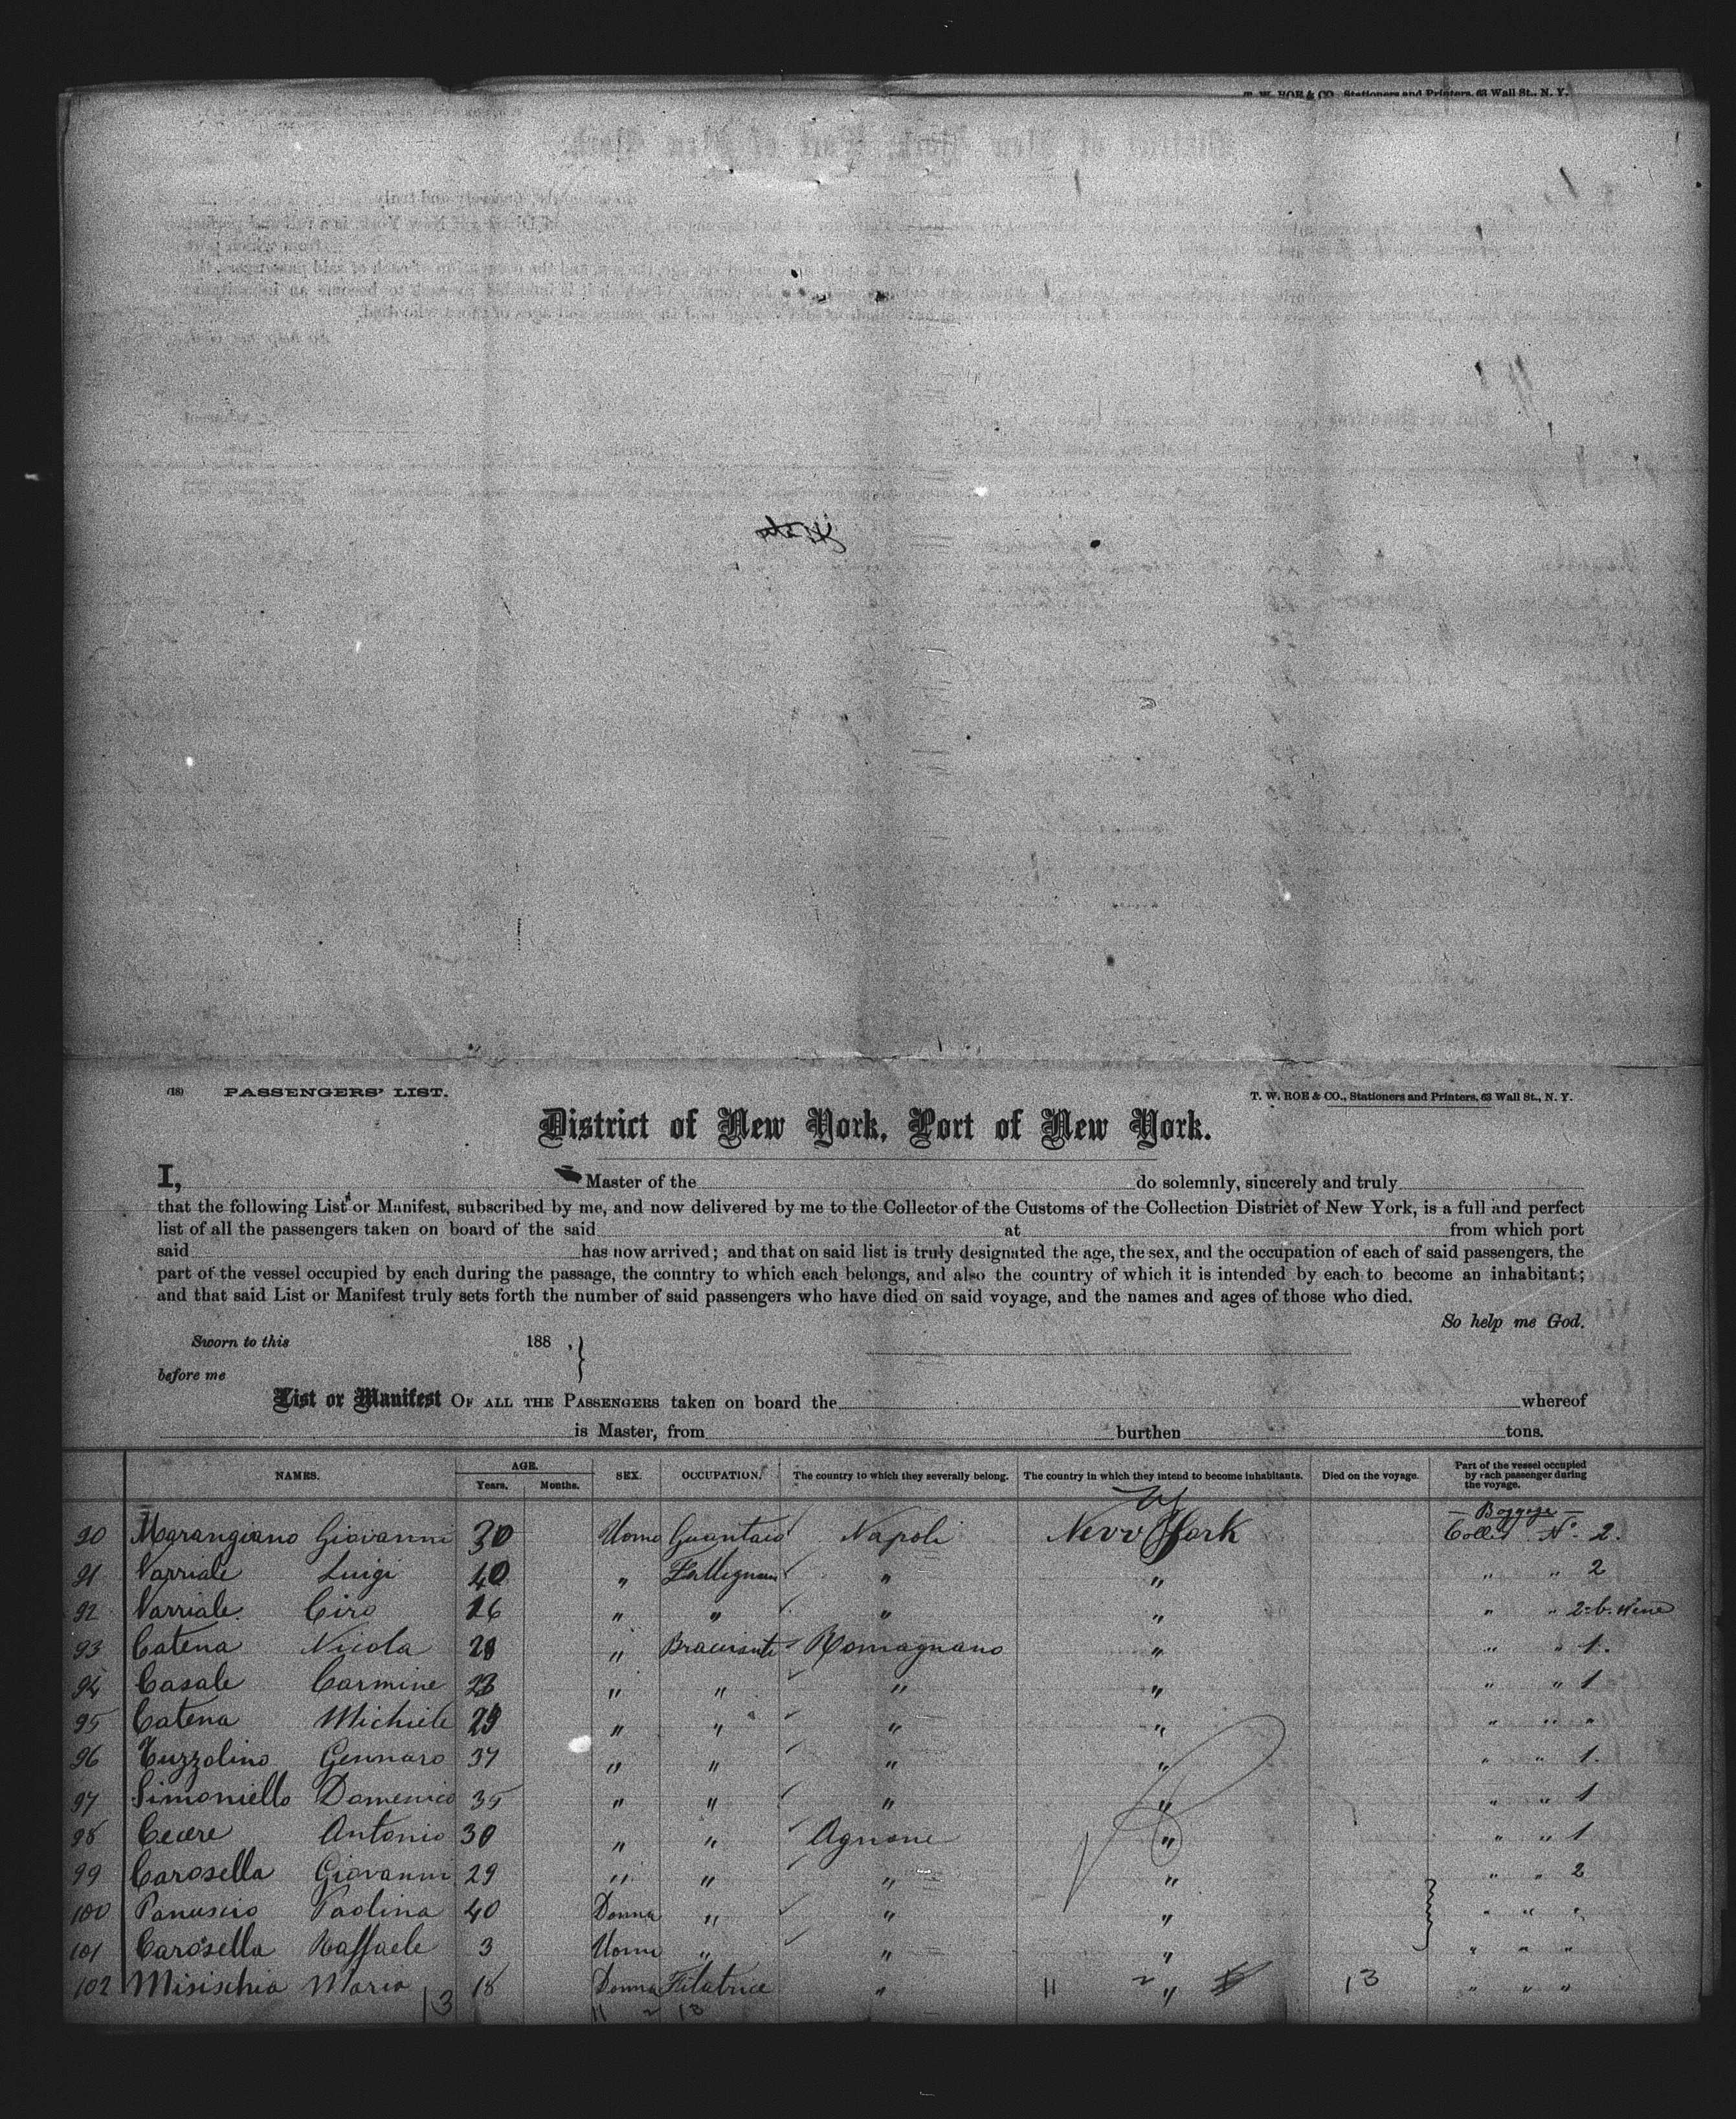 T. W. ROE & CO., Stationers and Printers, 63 Wall St., N. Y.
(18) PASSENGERS' LIST. T. W. ROE & CO., Stationers and Printers, 63 Wall St., N. Y.
District of New York, Port of New York.
I, Master of the do solemnly, sincerely and truly
that the following List or Manifest, subscribed by me, and now delivered by me to the Collector of the Customs of the Collection District of New York, is a full and perfect
list of all the passengers taken on board of the said at from which port
said has now arrived; and that on said list is truly designated the age, the sex, and the occupation of each of said passengers, the
part of the vessel occupied by each during the passage, the country to which each belongs, and also the country of which it is intended by each to become an inhabitant;
and that said List or Manifest truly sets forth the number of said passengers who have died on said voyage, and the names and ages of those who died.
So help me God.
Sworn to this 188 ,
before me
List or Manifest OF ALL THE PASSENGERS taken on board the whereof
is Master, from burthen tons.
NAMES. AGE. Years. Months. SEX. OCCUPATION. The country to which they severally belong. The country in which they intend to become inhabitants. Died on the voyage. Part of the vessel occupied by each passenger during the voyage.
Baggage
90 Marangiano Giovanni 30 Uomo Guantaio Napoli New York Colli N° 2.
91 Varriale Luigi 40 " " " " " 2
92 Varriale Ciro 16 " " " " " " 2
93 Catena Nicola 28 " Bracciante Romagnano " " " 1.
94 Casale Carmine 23 " " " " " " 1
95 Catena Michiele 29 " " " " " " "
96 Tuzzolino Gennaro 37 " " " " " " 1.
97 Simoniello Domenico 35 " " " " " " 1
98 Cecere Antonio 30 " " Agnone " " " 1
99 Carosella Giovanni 29 " " " " " " 2
100 Panuscio Paolina 40 Donna " " " " " "
101 Carosella Raffaele 3 Uomo " " " " " "
102 Misischia Maria 18 Donna Filatrice " 11 2 " 13 " " "
13 11 2 13